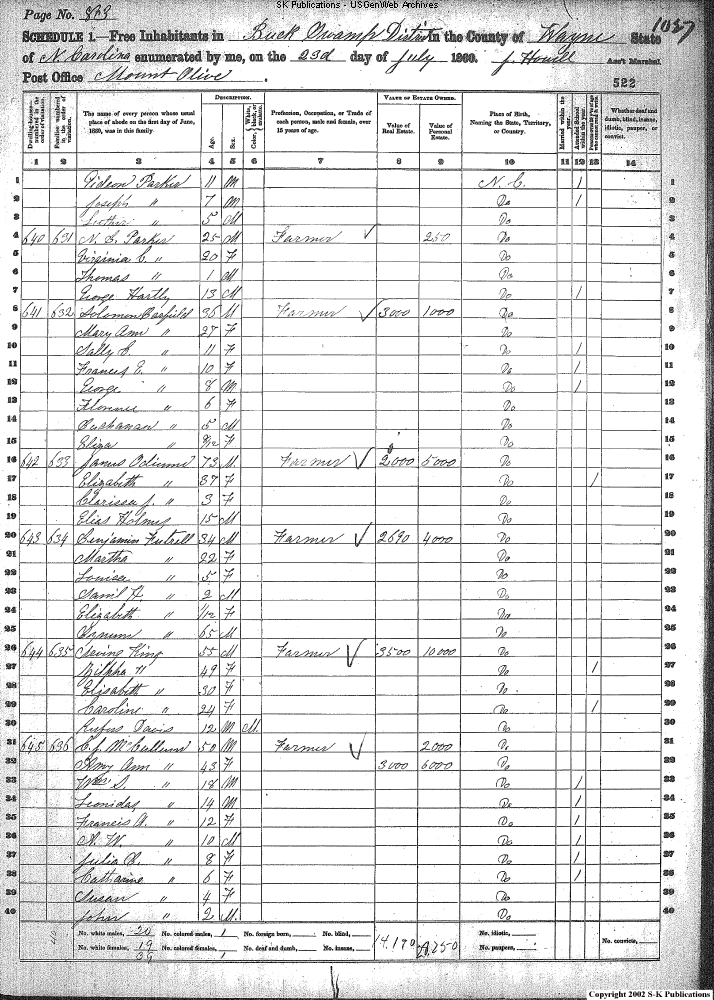 SK Publications - USGenWeb Archives
Page No. 1037
SCHEDULE 1.—Free Inhabitants in Buck Swamp District in the County of Wayne State
of N Carolina enumerated by me, on the 23d day of July 1860. J. Ass't Marshal
Post Office Mount Olive. 522
Dwelling-houses—numbered in the order of visitation.
Families numbered in the order of visitation.
The name of every person whose usual place of abode on the first day of June, 1860, was in this family.
DESCRIPTION.
Age.
Sex.
Color, White, black, or mulatto.
Profession, Occupation, or Trade of each person, male and female, over 15 years of age.
VALUE OF ESTATE OWNED.
Value of Real Estate.
Value of Personal Estate.
Place of Birth, Naming the State, Territory, or Country.
Married within the year.
Attended School within the year.
Persons over 20 y'rs of age who cannot read & write.
Whether deaf and dumb, blind, insane, idiotic, pauper, or convict.
1 2 3 4 5 6 7 8 9 10 11 12 13 14
1 Gideon Parker 11 M N. C. / 1
2 Joseph " 7 M Do / 2
3 Luther " 5 M Do 3
4 640 631 N. Parker 25 M Farmer 250 Do 4
5 Virginia C. " 20 F Do 5
6 Thomas " 1 M Do 6
7 George Hartly 13 M Do / 7
8 641 632 Solomon 36 M Farmer 3000 1000 Do 8
9 Mary Ann " 27 F Do 9
10 Sally C. " 11 F Do / 10
11 Frances E. " 10 F Do / 11
12 George " 8 M Do / 12
13 Florence " 6 F Do 13
14 Buchanan " 5 M Do 14
15 Eliza " F Do 15
16 642 633 James 73 M Farmer 2000 5000 Do 16
17 Elizabeth " 37 F Do / 17
18 Clarissa J. " 3 F Do 18
19 Elias Holmes 15 M Do 19
20 643 634 Benjamin Futrell 34 M Farmer 2690 4000 Do 20
21 Martha " 22 F Do 21
22 Louisa " 5 F Do 22
23 Saml H " 2 M Do 23
24 Elizabeth " 1/12 F Do 24
25 " 65 M Do 25
26 644 635 King 55 M Farmer 3500 10000 Do 26
27 " 49 F Do / 27
28 Elisabeth " 30 F Do 28
29 Caroline " 24 F Do / 29
30 Rufus Davis 12 M M. Do 30
31 645 636 C. J. McCullum 50 M Farmer 2000 Do 31
32 Amy Ann " 43 F 3000 6000 Do 32
33 Wm S. " 18 M Do / 33
34 Leonidas " 14 M Do / 34
35 Francis A. " 12 F Do / 35
36 A. W. " 10 M Do / 36
37 Julia " 8 F Do / 37
38 Catharine " 6 F Do / 38
39 Susan " 4 F Do 39
40 John " 2 M Do 40
No. white males, 20 No. colored males, 1 No. foreign born, No. blind, 14.190 No. idiotic, No. convicts,
No. white females, 19 No. colored females, No. deaf and dumb, No. insane, No. paupers,
39 1
Copyright 2002 S-K Publications